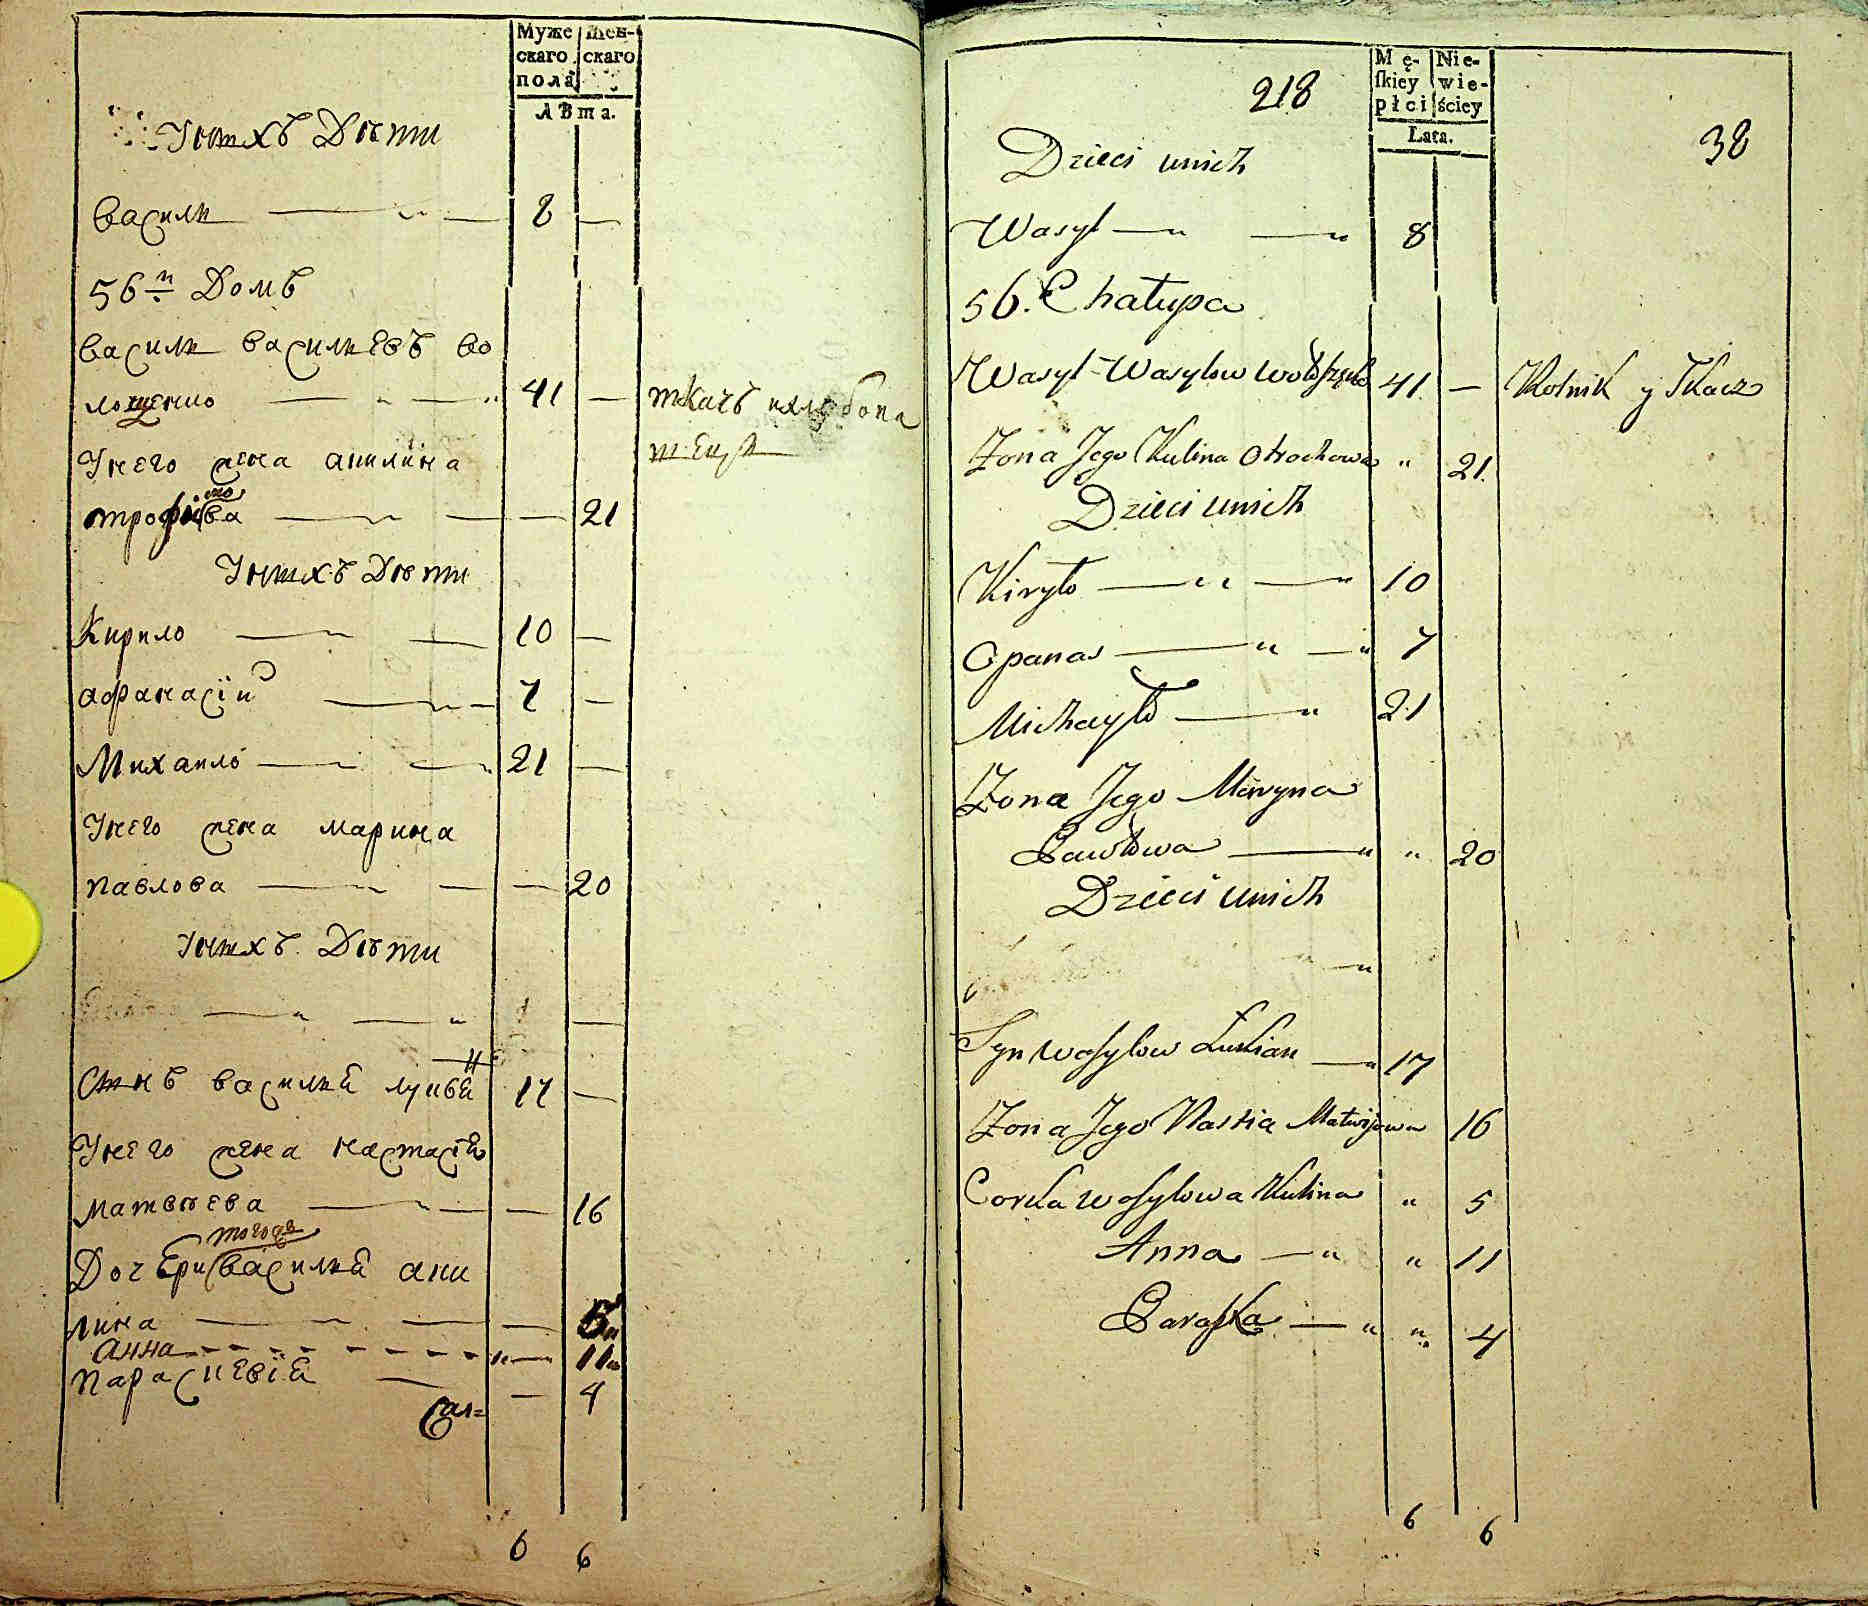 Муже Жен-
скаго скаго
пола
лѣта.
Унихъ Дѣти
василий 8
56й Домъ
василий василиевъ во
лощенко 41 ткачъ
Унего жена акилина
трофимова 21
Унихъ Дѣти
Кирило 10
афанасій 7
Михаило 21
Унего жена марина
павлова 20
Унихъ Дѣти
Сынъ василия 17
Унего жена настасія
матвѣева 16
Дочери тогожъ василия аки
лина 5
анна 11
параскевія 4
6 6
218
Mę- Nie-
skiey wie-
płci ściey
Lata.
38
Dzieci unich
Wasyl 8
56. Chałupa
Wasyl Wasylow 41 Rolnik y Tkacz
Zona Jego Kulina 21
Dzieci unich
Kiryło 10
Opanas 7
Michayło 21
Zona Jego Maryna
Pawłowa 20
Dzieci unich
Syn Wasylow Łukian 17
Zona Jego Nastia Matwijowa 16
Corka Wasylowa Kulina 5
Anna 11
Paraska 4
6 6